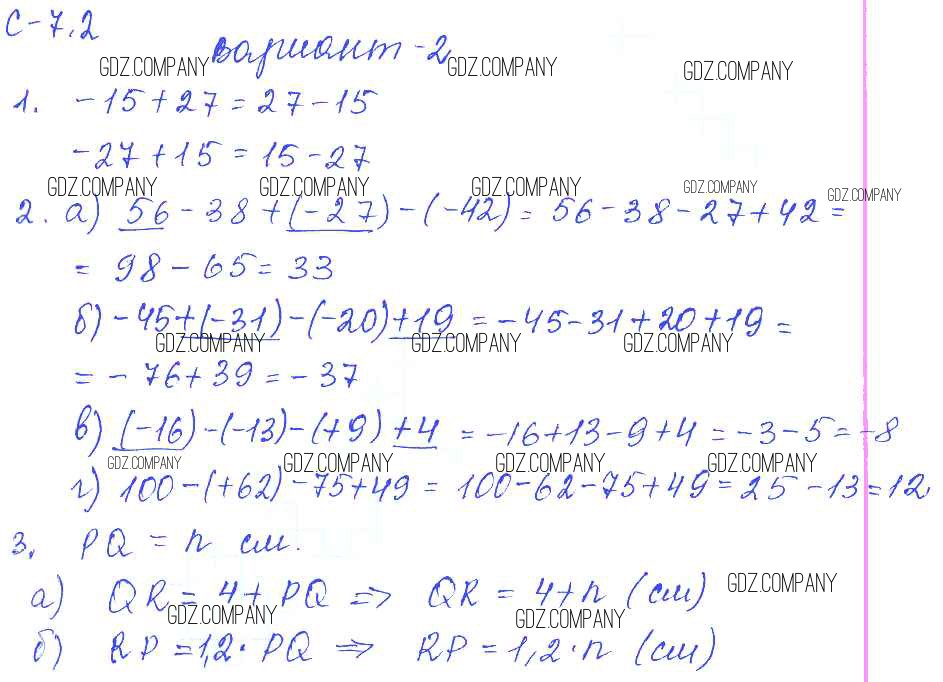 С-7.2
Вариант-2
GDZ.COMPANY GDZ.COMPANY GDZ.COMPANY
1. -15+27=27-15
-27+15=15-27
GDZ.COMPANY GDZ.COMPANY GDZ.COMPANY GDZ.COMPANY GDZ.COMPANY
2. а) 56-38+(-27)-(-42)=56-38-27+42=
=98-65=33
б) -45+(-31)-(-20)+19=-45-31+20+19=
GDZ.COMPANY GDZ.COMPANY GDZ.COMPANY
=-76+39=-37
в) (-16)-(-13)-(+9)+4=-16+13-9+4=-3-5=-8
GDZ.COMPANY GDZ.COMPANY GDZ.COMPANY GDZ.COMPANY
г) 100-(+62)-75+49=100-62-75+49=25-13=12
3. PQ=n см.
а) QR=4+PQ ⇒ QR=4+n (см) GDZ.COMPANY
GDZ.COMPANY GDZ.COMPANY
б) RP=1,2·PQ ⇒ RP=1,2·n (см)